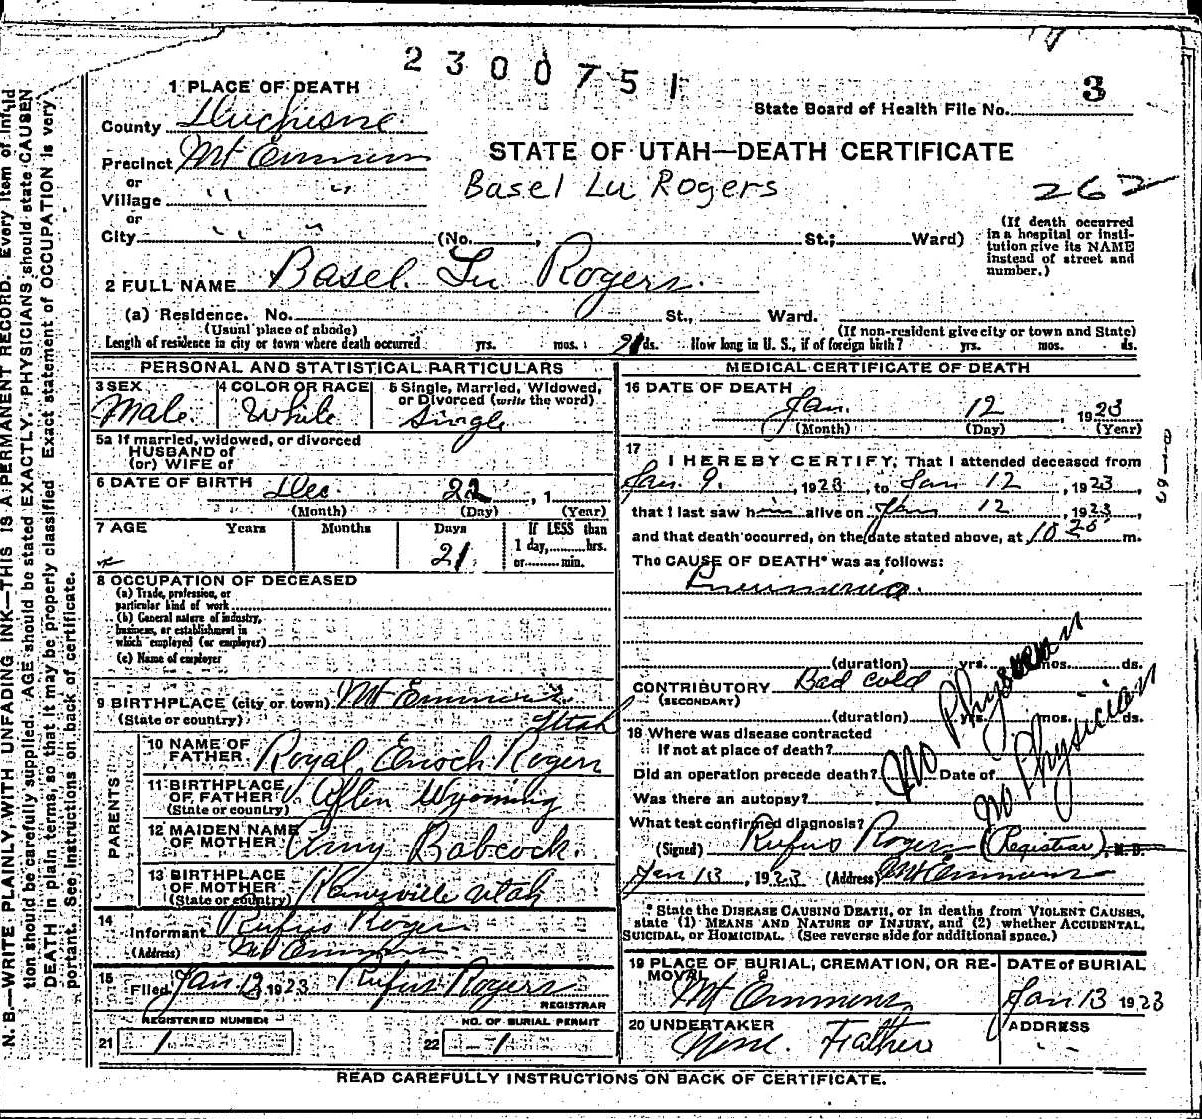 2300751
1 PLACE OF DEATH
County Duchisne
State Board of Health File No. 3
Precinct Mt Emmons
STATE OF UTAH—DEATH CERTIFICATE
or
Village " "
Basel Lu Rogers
262
or
City " "
(No. , St.; Ward)
(If death occurred in a hospital or institution give its NAME instead of street and number.)
2 FULL NAME Basel Lu Rogers.
(a) Residence. No. St., Ward.
(Usual place of abode) (If non-resident give city or town and State)
Length of residence in city or town where death occurred yrs. mos. 21 ds. How long in U. S., if of foreign birth? yrs. mos. ds.
PERSONAL AND STATISTICAL PARTICULARS
3 SEX Male
4 COLOR OR RACE White
5 Single, Married, Widowed, or Divorced (write the word) Single
5a If married, widowed, or divorced
HUSBAND of
(or) WIFE of
6 DATE OF BIRTH Dec. 22, 1
(Month) (Day) (Year)
7 AGE Years Months Days 21 If LESS than 1 day, hrs. or min.
8 OCCUPATION OF DECEASED
(a) Trade, profession, or
particular kind of work
(b) General nature of industry,
business, or establishment in
which employed (or employer)
(c) Name of employer
9 BIRTHPLACE (city or town) Mt Emmons
(State or country) Utah
PARENTS
10 NAME OF FATHER Royal Enoch Rogers
11 BIRTHPLACE OF FATHER Wyoming
(State or country)
12 MAIDEN NAME OF MOTHER Amy Babcock.
13 BIRTHPLACE OF MOTHER Kanesville Utah
(State or country)
14 Informant Rufus Rogers
(Address) Mt Emmons
15 Filed Jan 13, 1923 Rufus Rogers
REGISTRAR
REGISTERED NUMBER
NO. OF BURIAL PERMIT
21 1
22 1
MEDICAL CERTIFICATE OF DEATH
16 DATE OF DEATH
Jan. 12 1923
(Month) (Day) (Year)
17 I HEREBY CERTIFY, That I attended deceased from
Jan 9., 1923, to Jan 12, 1923,
that I last saw him alive on Jan 12, 1923,
and that death occurred, on the date stated above, at 10 20 m.
The CAUSE OF DEATH* was as follows:
Pneumonia.
(duration) yrs. mos. ds.
CONTRIBUTORY Bad cold
(SECONDARY)
(duration) yrs. mos. ds.
18 Where was disease contracted
If not at place of death?
Did an operation precede death? Date of
Was there an autopsy?
What test confirmed diagnosis?
No Physician
No Physician
(Signed) Rufus Rogers (Registrar), M. D.
Jan 13, 1923 (Address) Mt Emmons
* State the DISEASE CAUSING DEATH, or in deaths from VIOLENT CAUSES,
state (1) MEANS AND NATURE OF INJURY, and (2) whether ACCIDENTAL,
SUICIDAL, or HOMICIDAL. (See reverse side for additional space.)
19 PLACE OF BURIAL, CREMATION, OR REMOVAL
Mt Emmons
DATE of BURIAL
Jan 13 1923
20 UNDERTAKER
None. Father
ADDRESS
READ CAREFULLY INSTRUCTIONS ON BACK OF CERTIFICATE.
N. B.—WRITE PLAINLY, WITH UNFADING INK—THIS IS A PERMANENT RECORD. Every item of
tion should be carefully supplied. AGE should be stated EXACTLY. PHYSICIANS should state CAUSE
DEATH in plain terms, so that it may be properly classified. Exact statement of OCCUPATION is very
portant. See instructions on back of certificate.